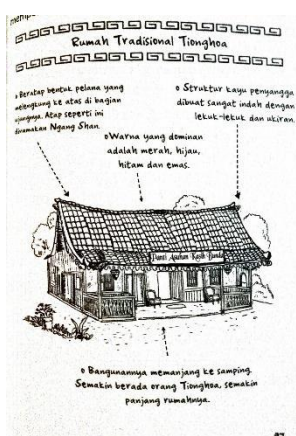 Rumah Tradisional Tionghoa
o Beratap bentuk pelana yang
melengkung ke atas di bagian
ujungnya. Atap seperti ini
dinamakan Ngang Shan.
o Struktur kayu penyangga
dibuat sangat indah dengan
lekuk-lekuk dan ukiran.
o Warna yang dominan
adalah merah, hijau,
hitam dan emas.
Panti Asuhan Kasih Bunda
o Bangunannya memanjang ke samping.
Semakin berada orang Tionghoa, semakin
panjang rumahnya.